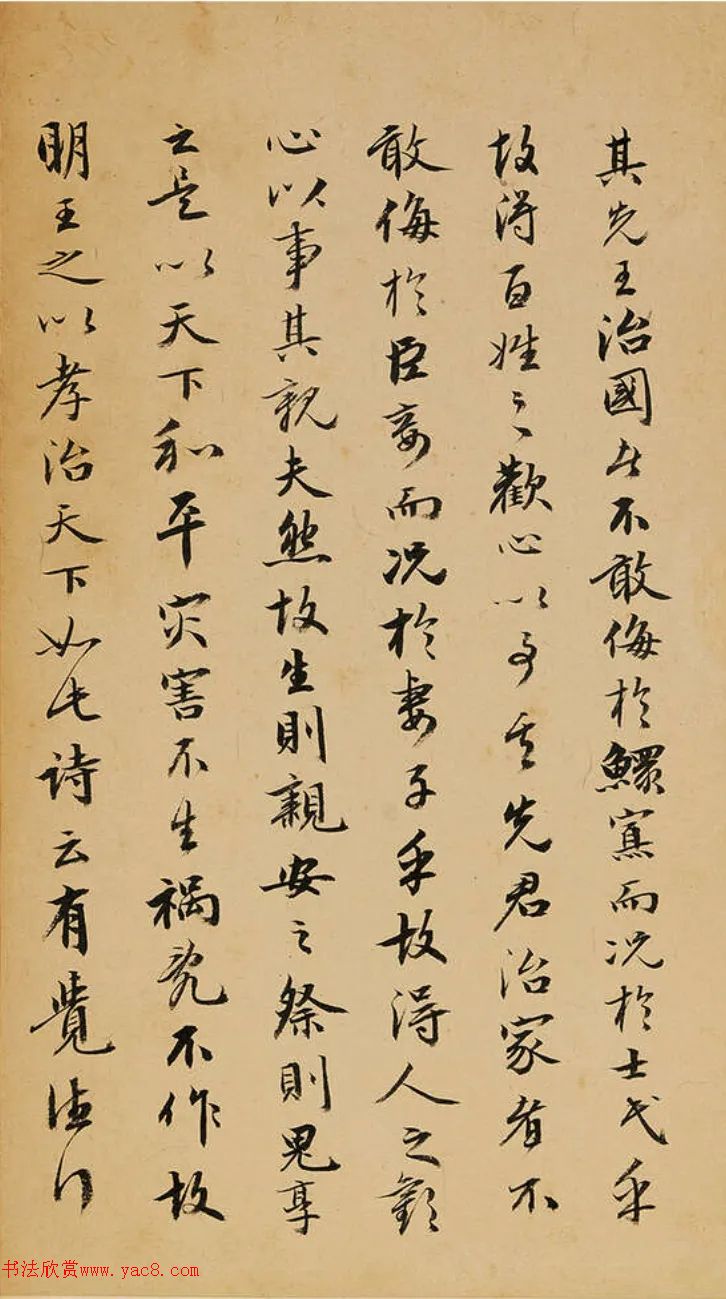 其先王治國者不敢侮於鰥寡而况於士民乎
故得百姓之歡心以事其先君治家者不
敢侮於臣妾而况於妻子乎故得人之歡
心以事其親夫然故生則親安之祭則鬼享
之是以天下和平灾害不生禍亂不作故
明王之以孝治天下如此詩云有覺德行
书法欣赏www.yac8.com